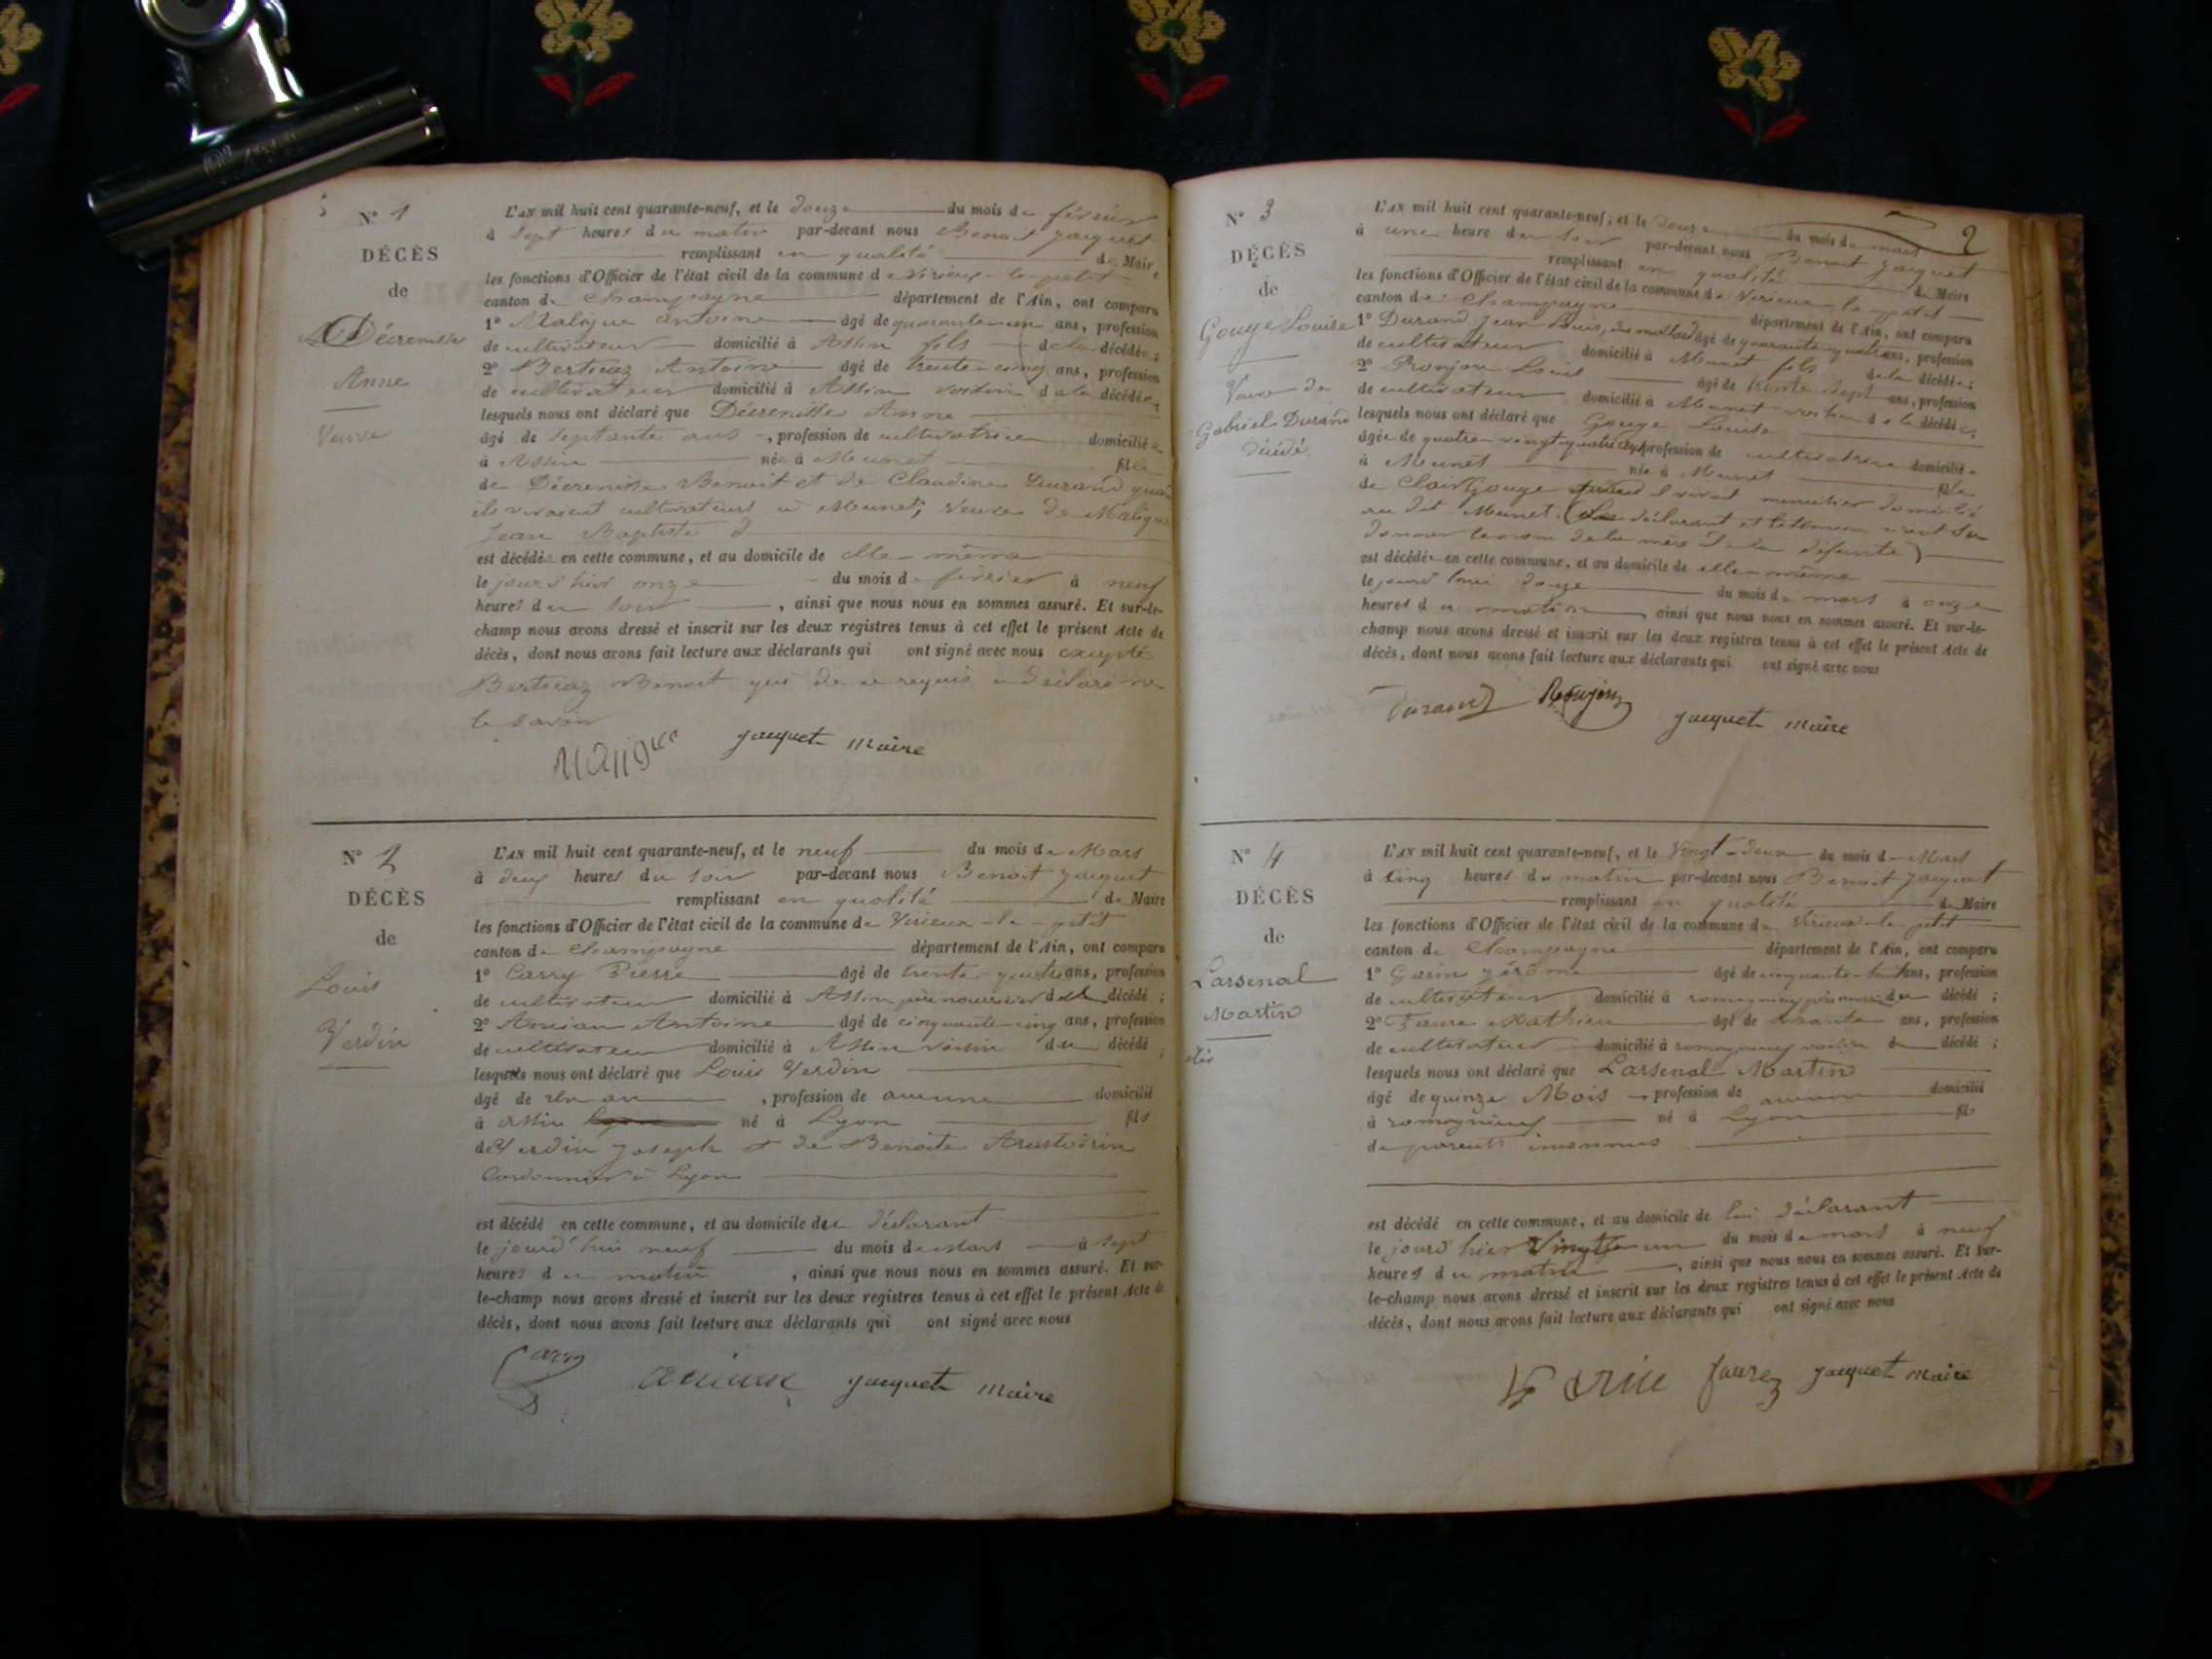 N° 1
DÉCÈS
de
Décrenisse
Anne
Veuve
L'AN mil huit cent quarante-neuf, et le douze du mois de février
à sept heures du matin par-devant nous Benoit Jacquet
remplissant en qualité de Maire
les fonctions d'Officier de l'état civil de la commune de Virieux-le-petit
canton de Champagne département de l'Ain, ont comparu
1° Maligue antoine âgé de quarante-un ans, profession
de cultivateur domicilié à Assin fils de la décédée;
2° Bertucaz Antoine âgé de trente-cinq ans, profession
de cultivateur domicilié à Assin voisin de la décédée,
lesquels nous ont déclaré que Décrenisse Anne
âgé de septante ans, profession de cultivatrice domiciliée
à Assin née à Munet fille
de Décrenisse Benoit et de Claudine Durand quand
ils vivaient cultivateurs à Munet; veuve de Maligue
Jean Baptiste
est décédée en cette commune, et au domicile de elle-même
le jourd'hier onze du mois de février à neuf
heures du soir, ainsi que nous nous en sommes assuré. Et sur-le-
champ nous avons dressé et inscrit sur les deux registres tenus à cet effet le présent Acte de
décès, dont nous avons fait lecture aux déclarants qui ont signé avec nous excepté
Bertucaz Benoit qui de ce requis a déclaré ne
le savoir
Jacquet maire
N° 2
DÉCÈS
de
Louis
Verdin
L'AN mil huit cent quarante-neuf, et le neuf du mois de Mars
à deux heures du soir par-devant nous Benoit Jacquet
remplissant en qualité de Maire
les fonctions d'Officier de l'état civil de la commune de Virieux-le-petit
canton de Champagne département de l'Ain, ont comparu
1° Carry Pierre âgé de trente-quatre ans, profession
de cultivateur domicilié à Assin père nourricier du décédé;
2° Antoine âgé de cinquante-cinq ans, profession
de cultivateur domicilié à Assin voisin du décédé,
lesquels nous ont déclaré que Louis Verdin
âgé de un an, profession de aucune domicilié
à Assin né à Lyon fils
de Verdin Joseph et de Benoite
Cordonnier à Lyon
est décédé en cette commune, et au domicile du déclarant
le jourd'hui neuf du mois de Mars à sept
heures du matin, ainsi que nous nous en sommes assuré. Et sur-
le-champ nous avons dressé et inscrit sur les deux registres tenus à cet effet le présent Acte de
décès, dont nous avons fait lecture aux déclarants qui ont signé avec nous
Carry Jacquet maire
2
N° 3
DÉCÈS
de
Gouge Louise
Veuve de
Gabriel Durand
Décédé.
L'AN mil huit cent quarante-neuf, et le douze du mois de mars
à une heure du soir par-devant nous Benoit Jacquet
remplissant en qualité de Maire
les fonctions d'Officier de l'état civil de la commune de Virieux-le-petit
canton de Champagne département de l'Ain, ont comparu
1° Durand Jean Louis, âgé de quarante-quatre ans, profession
de cultivateur domicilié à Munet fils de la décédée;
2° Louis âgé de trente sept ans, profession
de cultivateur domicilié à Munet voisin de la décédée,
lesquels nous ont déclaré que Gouge Louise
âgée de quatre-vingt-quatre ans profession de cultivatrice domiciliée
à Munet née à Munet fille
de Clair Gouge quand il vivait menuisier domicilié
au dit Munet. (Le déclarant et le témoin n'ont su
donner le nom de la mère de la défunte)
est décédée en cette commune, et au domicile de elle-même
le jourd'hui douze du mois de mars à onze
heures du matin, ainsi que nous nous en sommes assuré. Et sur-le-
champ nous avons dressé et inscrit sur les deux registres tenus à cet effet le présent Acte de
décès, dont nous avons fait lecture aux déclarants qui ont signé avec nous
Durand Jacquet maire
N° 4
DÉCÈS
de
Larsenal
Martin
L'AN mil huit cent quarante-neuf, et le Vingt-deux du mois de Mars
à Cinq heures du matin par-devant nous Benoit Jacquet
remplissant en qualité de Maire
les fonctions d'Officier de l'état civil de la commune de Virieux-le-petit
canton de Champagne département de l'Ain, ont comparu
1° Garin Jérôme âgé de cinquante-huit ans, profession
de cultivateur domicilié à romagnieu du décédé;
2° Faure Mathieu âgé de ans, profession
de cultivateur domicilié à romagnieu voisin du décédé;
lesquels nous ont déclaré que Larsenal Martin
âgé de quinze Mois profession de aucune domicilié
à romagnieu né à Lyon fils
de parents inconnus
est décédé en cette commune, et au domicile de lui déclarant
le jourd'hier Vingt un du mois de mars à neuf
heures du matin, ainsi que nous nous en sommes assuré. Et sur-
le-champ nous avons dressé et inscrit sur les deux registres tenus à cet effet le présent Acte de
décès, dont nous avons fait lecture aux déclarants qui ont signé avec nous
Faure Jacquet maire